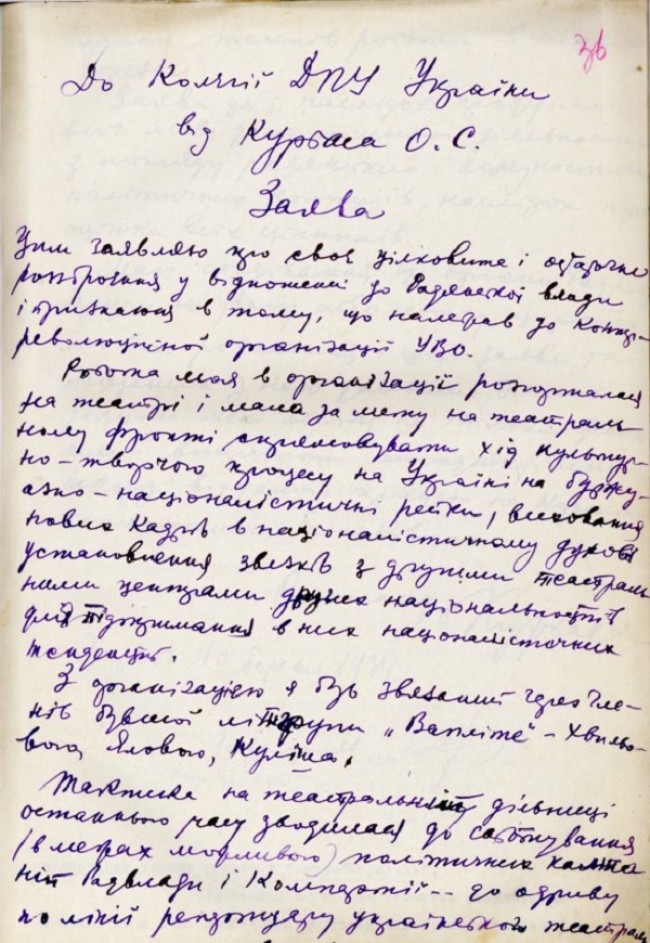 36
До Колегії ДПУ України
від Курбаса О. С.
Заява
Цим заявляю про своє цілковите і остаточне
роззброєння у відношенні до Радянської влади
і признання в тому, що належав до контр-
революційної організації УВО.
Робота моя в організації розгорталася
на театрі і мала за мету на театраль-
ному фронті скеровувати хід культур-
но-творчого процесу на Україні на буржу-
азно-націоналістичні рейки, виховання
нових кадрів в націоналістичному дусі
установлення звязків з другими театраль
ними центрами других національностей
для підтримання в них націоналістичних
тенденцій.
З організацією я був звязаний через чле-
нів бувшої літгрупи „Вапліте" – Хвильо-
вого, Ялового, Куліша.
Тактика на театральній дільниці
останнього часу зводилася до саботування
(в межах можливого) політичних кампа
ній Радвлади і Компартії -- до одриву
по лінії репертуару українського театру